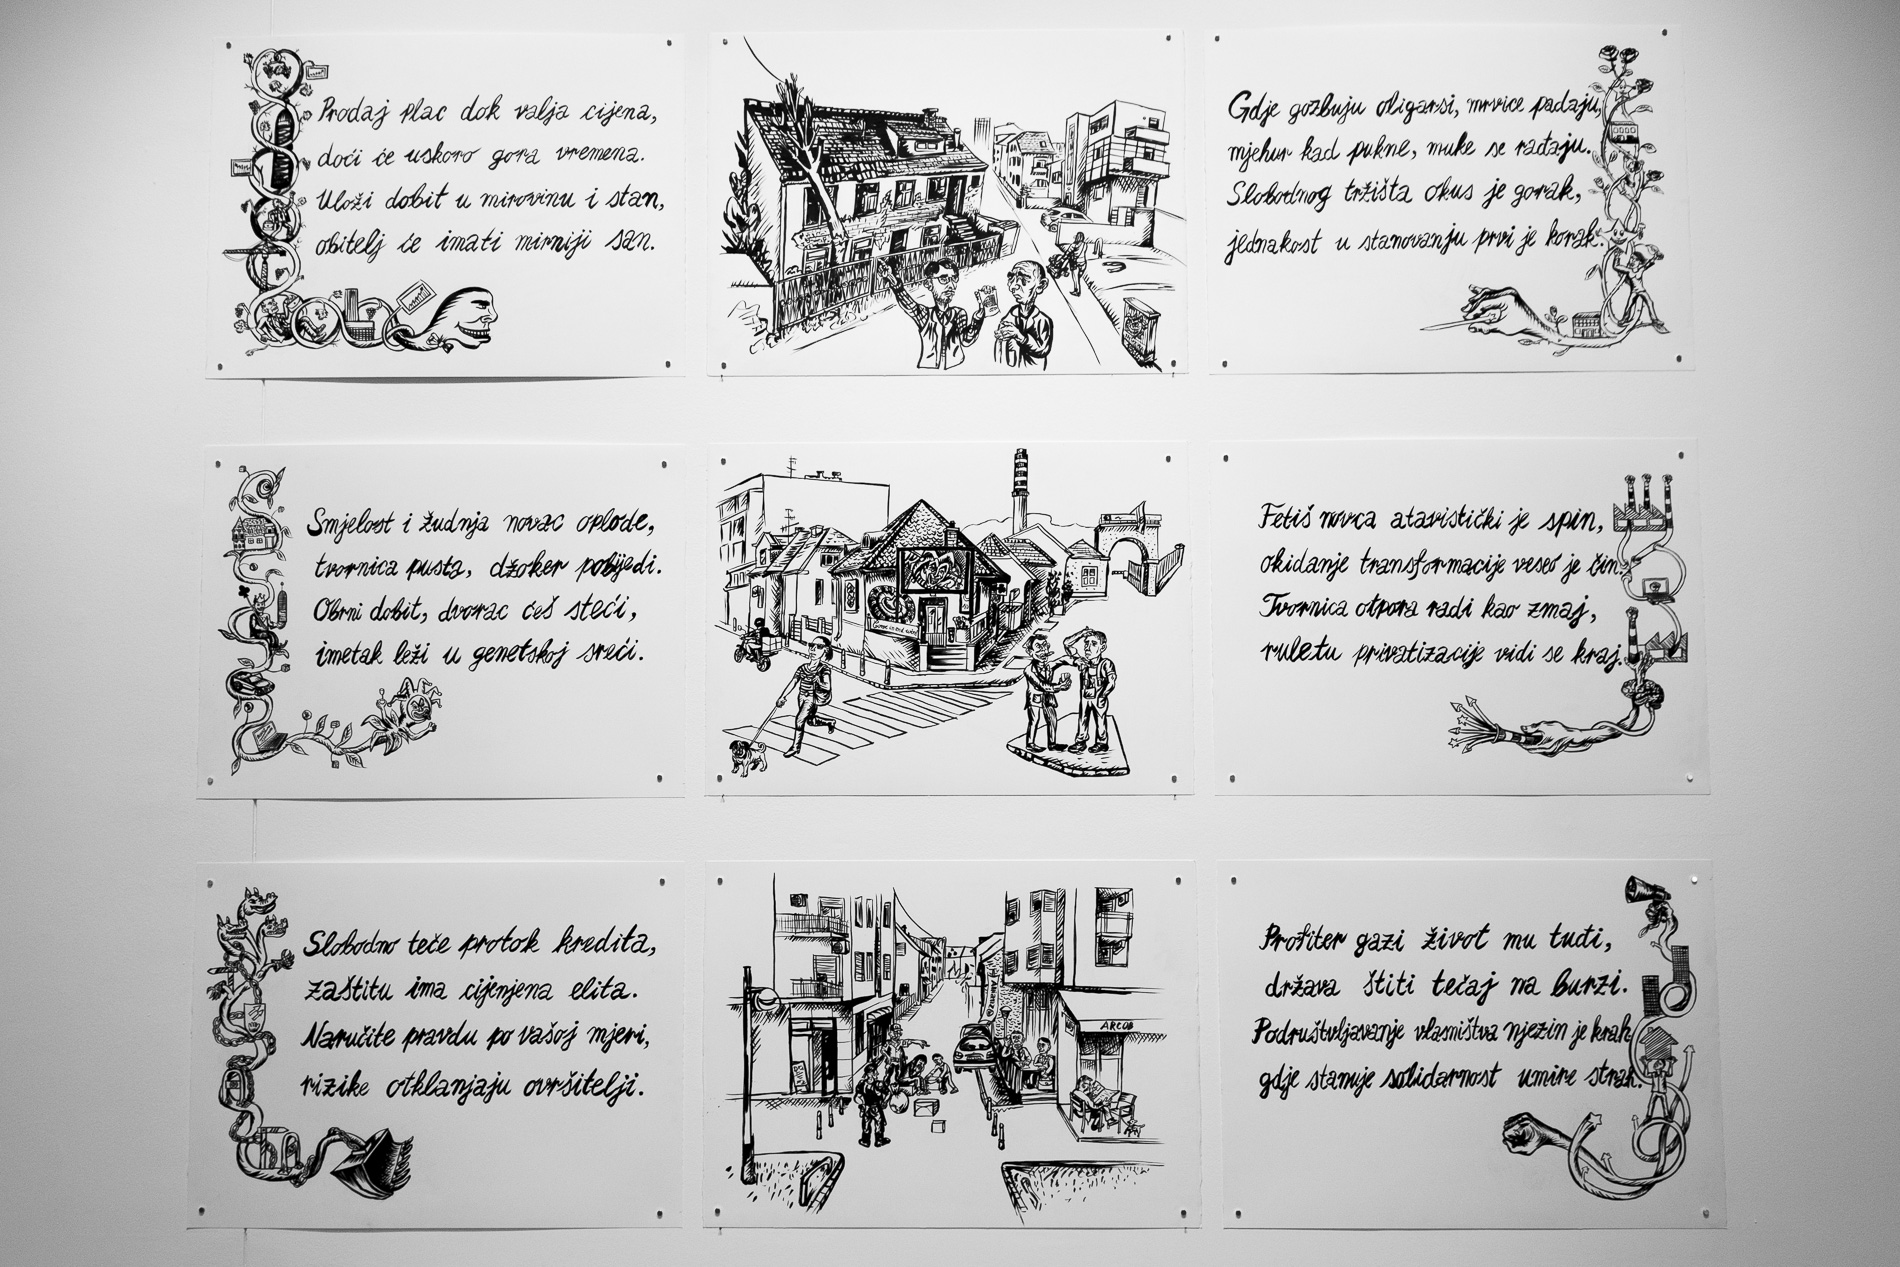 Prodaj plac dok valja cijena,
doći će uskoro gora vremena.
Uloži dobit u mirovinu i stan,
obitelj će imati mirniji san.
Gdje gozbuju oligarsi, mrvice padaju,
mjehur kad pukne, muke se rađaju.
Slobodnog tržišta okus je gorak,
jednakost u stanovanju prvi je korak.
Smjelost i žudnja novac oplode,
tvornica pusta, džoker pobijedi.
Obrni dobit, dvorac ćeš steći,
imetak leži u genetskoj sreći.
Fetiš novca atavistički je spin,
okidanje transformacije veseo je čin.
Tvornica otpora radi kao zmaj,
ruletu privatizacije vidi se kraj.
Slobodno teče protok kredita,
zaštitu ima cijenjena elita.
Naručite pravdu po vašoj mjeri,
rizike otklanjaju ovršitelji.
ARCOB
Profiter gazi život mu tuđi,
država štiti tečaj na burzi.
Podruštvljavanje vlasništva njezin je krah
gdje stanuje solidarnost umire strah.